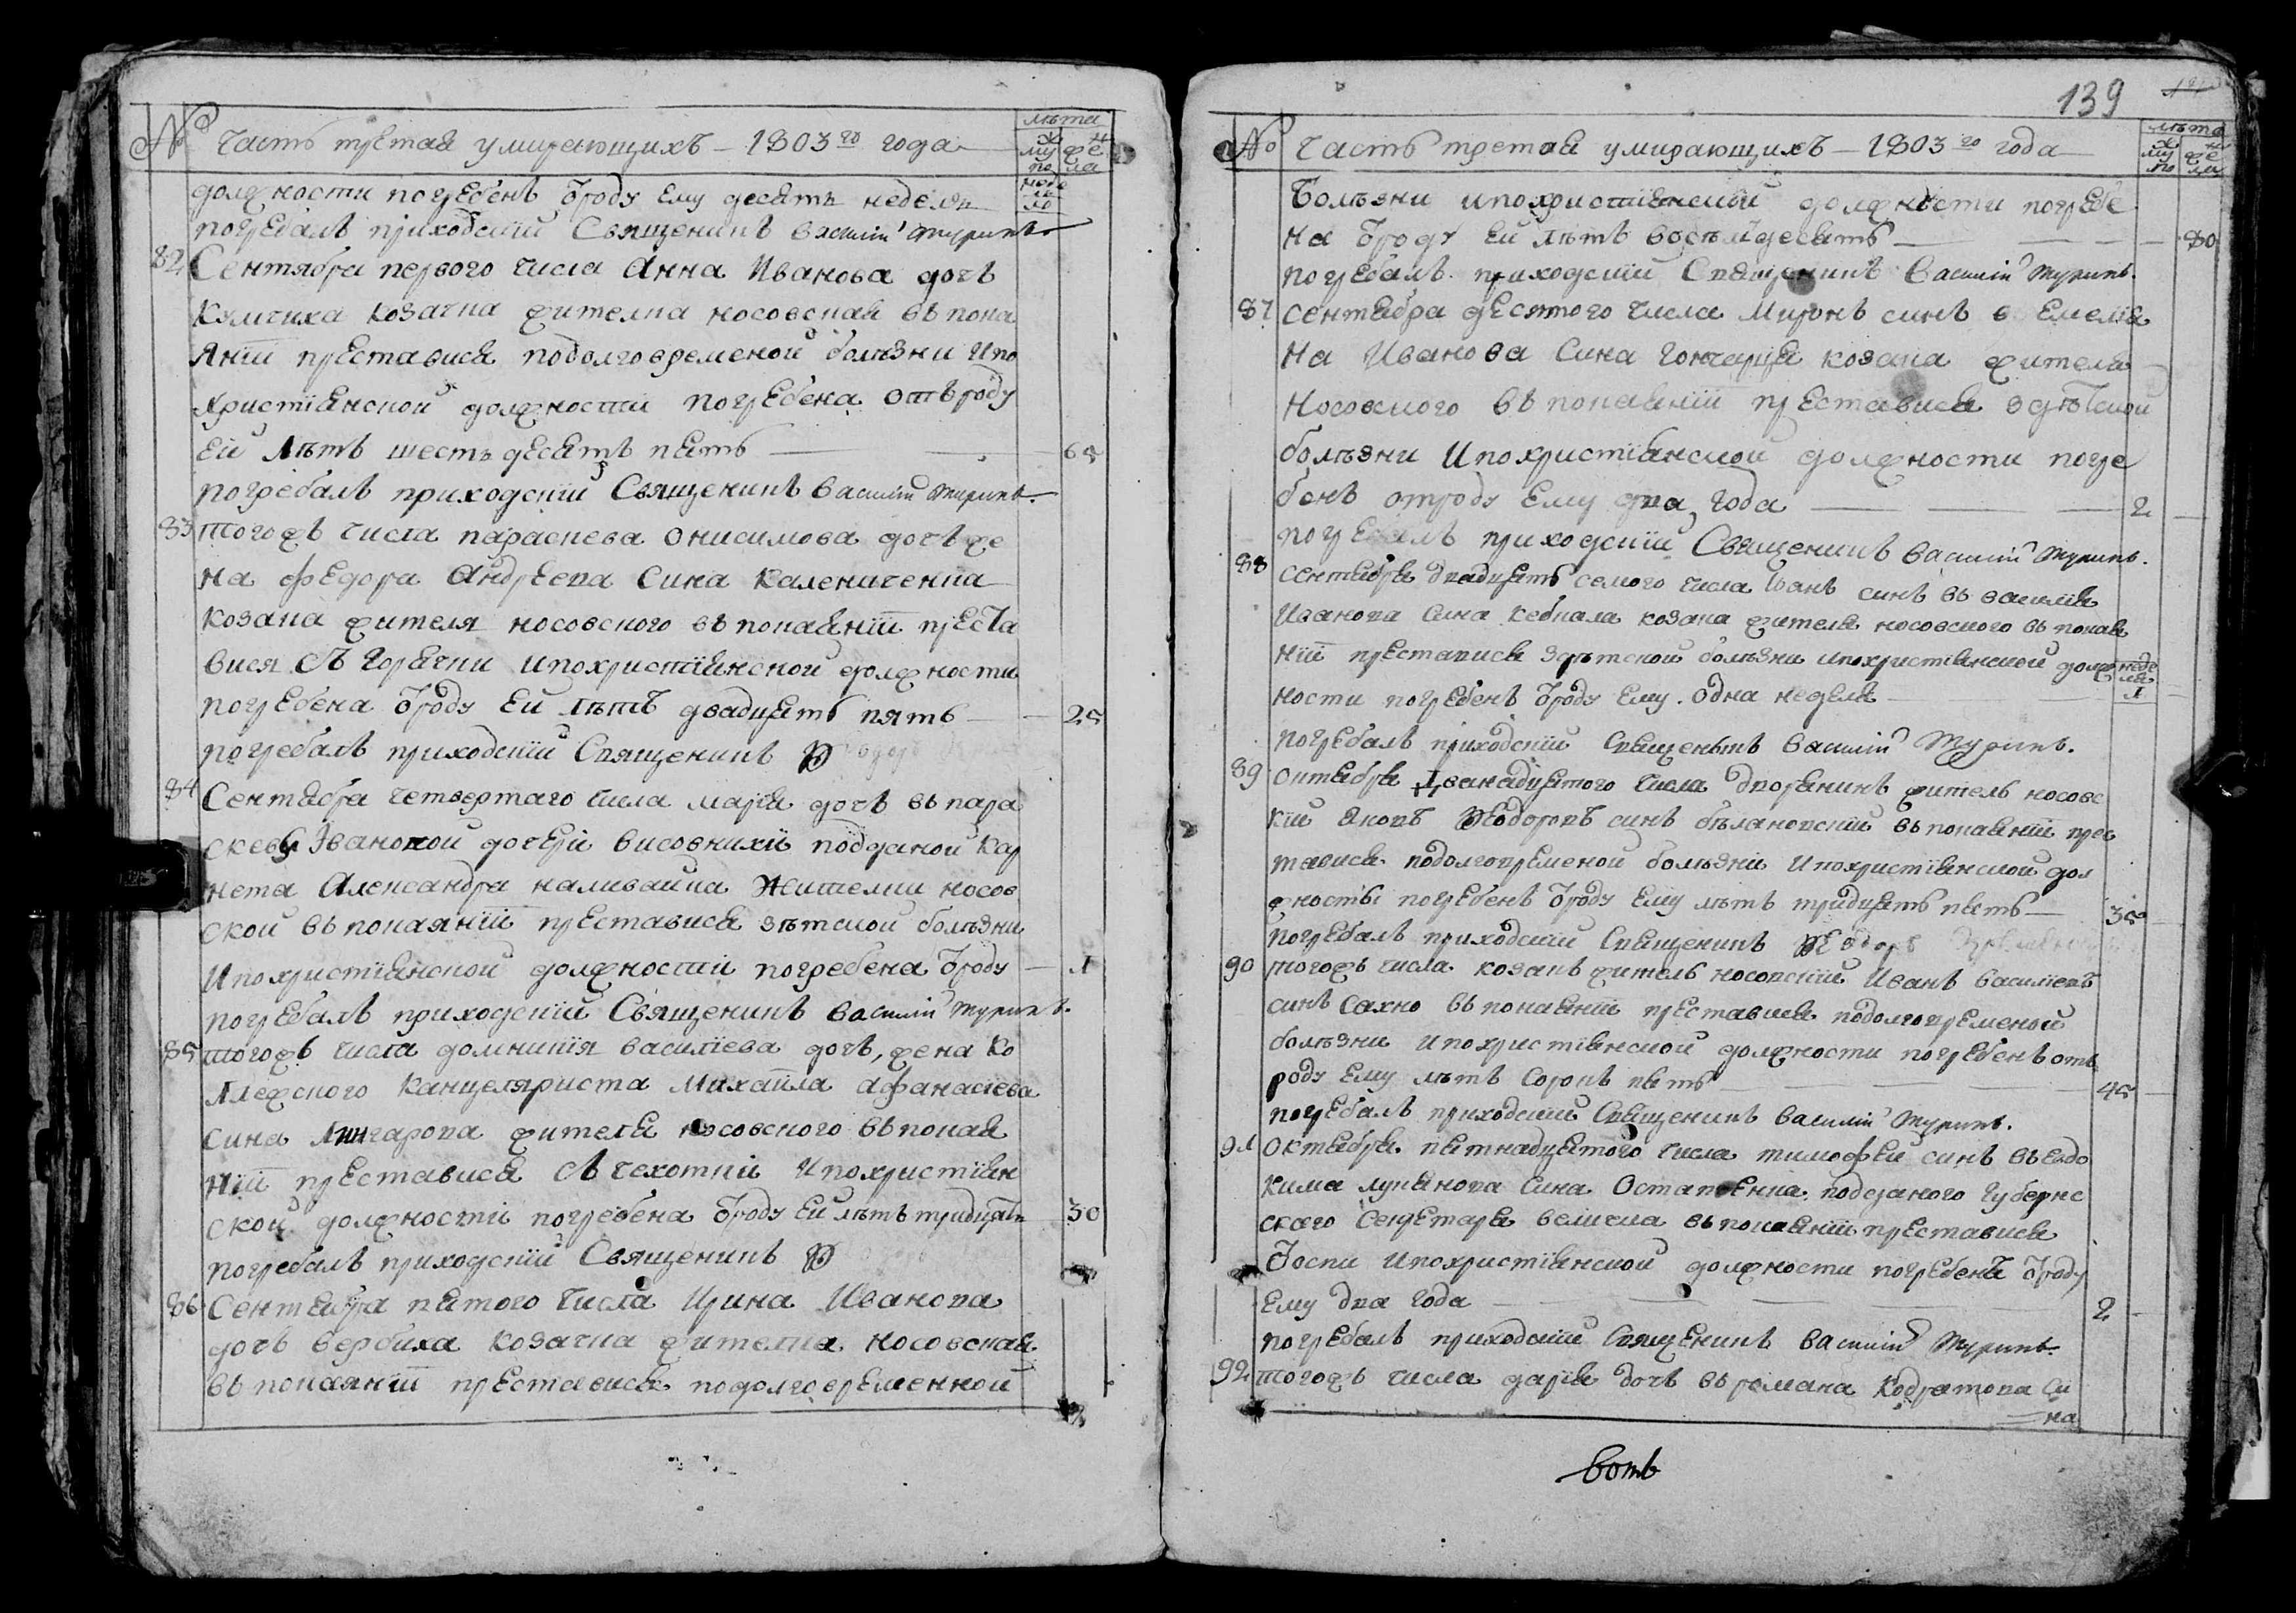 № Часть третая умирающихъ – 1803го года
лѣта
мужеска
женска
должности погребенъ ѿроду ему десять недель
неде
ль
10
погребалъ приходскїй Священикъ василїй Журикъ
82 Сентября первого числа Анна Иванова дочь
Кумчиха козачка жителка носовская въ пока
янїй преставися подолговременой болѣзни ипо
христїянской должности погребена отъ роду
ей лѣтъ шестьдесятъ пять — 65
погребалъ приходскїй Священикъ василїй Журикъ
83 тогожъ числа параскева Онисимова дочь же
на Федора Андреева сина Калениченка
козака жителя носовского въ покаянїй преста
вися съ горячки ипохристїянской должности
погребена ѿроду ей лѣтъ двадцять пять — 25
погребалъ приходскїй Священикъ
84 Сентября четвертаго числа марїя дочь въ пара
скевы Ивановой дочери висовнихи подданой Кар
нета Александра наливайка Жителки носов
ской въ покаянїй преставися здѣтской болѣзни
ипохристїянской должности погребена ѿроду — 1
погребалъ приходскїй Священикъ василїй Журикъ
85 тогожъ числа домникїя василїева дочь, жена ко
лежского Канцеляриста Михайла афанасїева
сина жителя носовского въ покая
нїй преставися съ чехотки ипохристїян
ской должности погребена ѿроду ей лѣтъ тридцять 30
погребалъ приходскїй Священикъ
86 Сентября пятого числа Ирина Иванова
дочь вербиха козачка жителка носовская
въ покаянїй преставися подолговременной
139
№ Часть третая умирающихъ – 1803го года
лѣта
мужеска
женска
болѣзни ипохристїянской должности погребе
на ѿроду ей лѣтъ восемдесять — 80
погребалъ приходскїй Священикъ василїй Журикъ.
87 сентября десятого числа Миронъ синъ в Емелїя
на Иванова Сина Гончарця козака жителя
Носовского въ покаянїй преставися здѣтской
болѣзни ипохристїянской должности погре
бенъ отроду ему два года — 2
погребалъ приходскїй Священикъ василїй Журикъ.
88 сентября двадцять семого числа Іванъ синъ въ василїя
Иванова сина кебкала козака жителя носовского въ покая
нїй преставися здѣтской болѣзни ипохристїянской долж
неде
ля
1
ности погребенъ ѿроду ему одна неделя
погребалъ приходскїй Священыкъ василїй Журикъ.
89 октября дванадцятого числа дворянинъ житель носовс
кїй яковъ Жеодоровъ синъ бѣлановскїй въ покаянїй прес
тавися подолговременой болѣзни ипохристїянской дол
жности погребенъ ѿроду ему лѣтъ тридцять пять — 35
погребалъ приходскїй Священикъ
90 тогожъ числа козакъ житель носовскїй Иванъ василїевъ
синъ сахно въ покаянїй преставися подолговременой
болѣзни ипохристїянской должности погребенъ отъ
роду ему лѣтъ сорокъ пять 45
погребалъ приходскїй Священикъ василїй Журикъ.
91 октября пятнадцятого числа тимофей синъ въ евдо
кима лукянова сина Остапенка подданого Губернс
ского Секретаря величка въ покаянїй преставися
ѿоспи ипохристїянской должности погребенъ ѿроду
ему два года — 2
погребалъ приходскїй Священикъ василїй Журикъ
92 тогожъ числа дарїя дочь въ романа Кодратова си
на